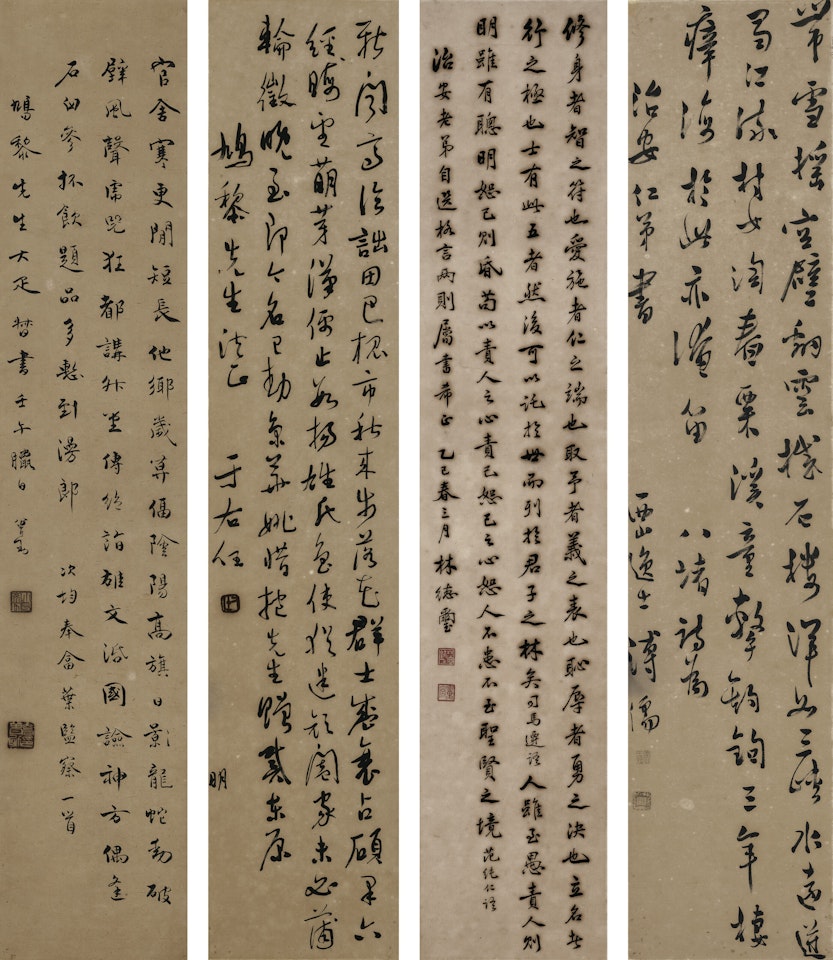 帶雪摇空壁翻雲挂石樓渾如三峽水遠逆
蜀江流村女淘舂粟溪童擊釣鉤三年棲
瘴海於此亦淹留 八堵詩為
治安仁弟書 西山逸士溥儒
修身者智之符也愛施者仁之端也取予者義之表也恥辱者勇之決也立名者
行之極也士有此五者然後可以託於世而列於君子之林矣司馬遷語 人雖至愚責人則
明雖有聰明恕己則昏苟以責人之心責己恕己之心恕人不患不至聖賢之境 范純仁語
治安老弟自選格言兩則屬書希正 乙巳春三月 林德璽
新聞高論詘田巴槐市秋來步落花群士盛衰占碩果六
經晦望萌芽漢儒止數揚雄氏魯使猶迷顏闔家未必蒲
輪徵晚至即今名已動京華 姚惜抱先生贈戴東原
明
鳩黎先生法正 于右任
官舍寒更閒短長他鄉歲算偪陰陽高旗日影龍蛇動破
壁風聲虎兕狂都講升堂傳絕詣雄文治國諗神方偶逢
石凹參杯飲題品多慙到漫郎 次均奉畣葉監察一首
鳩黎先生大疋 書 壬午臘日